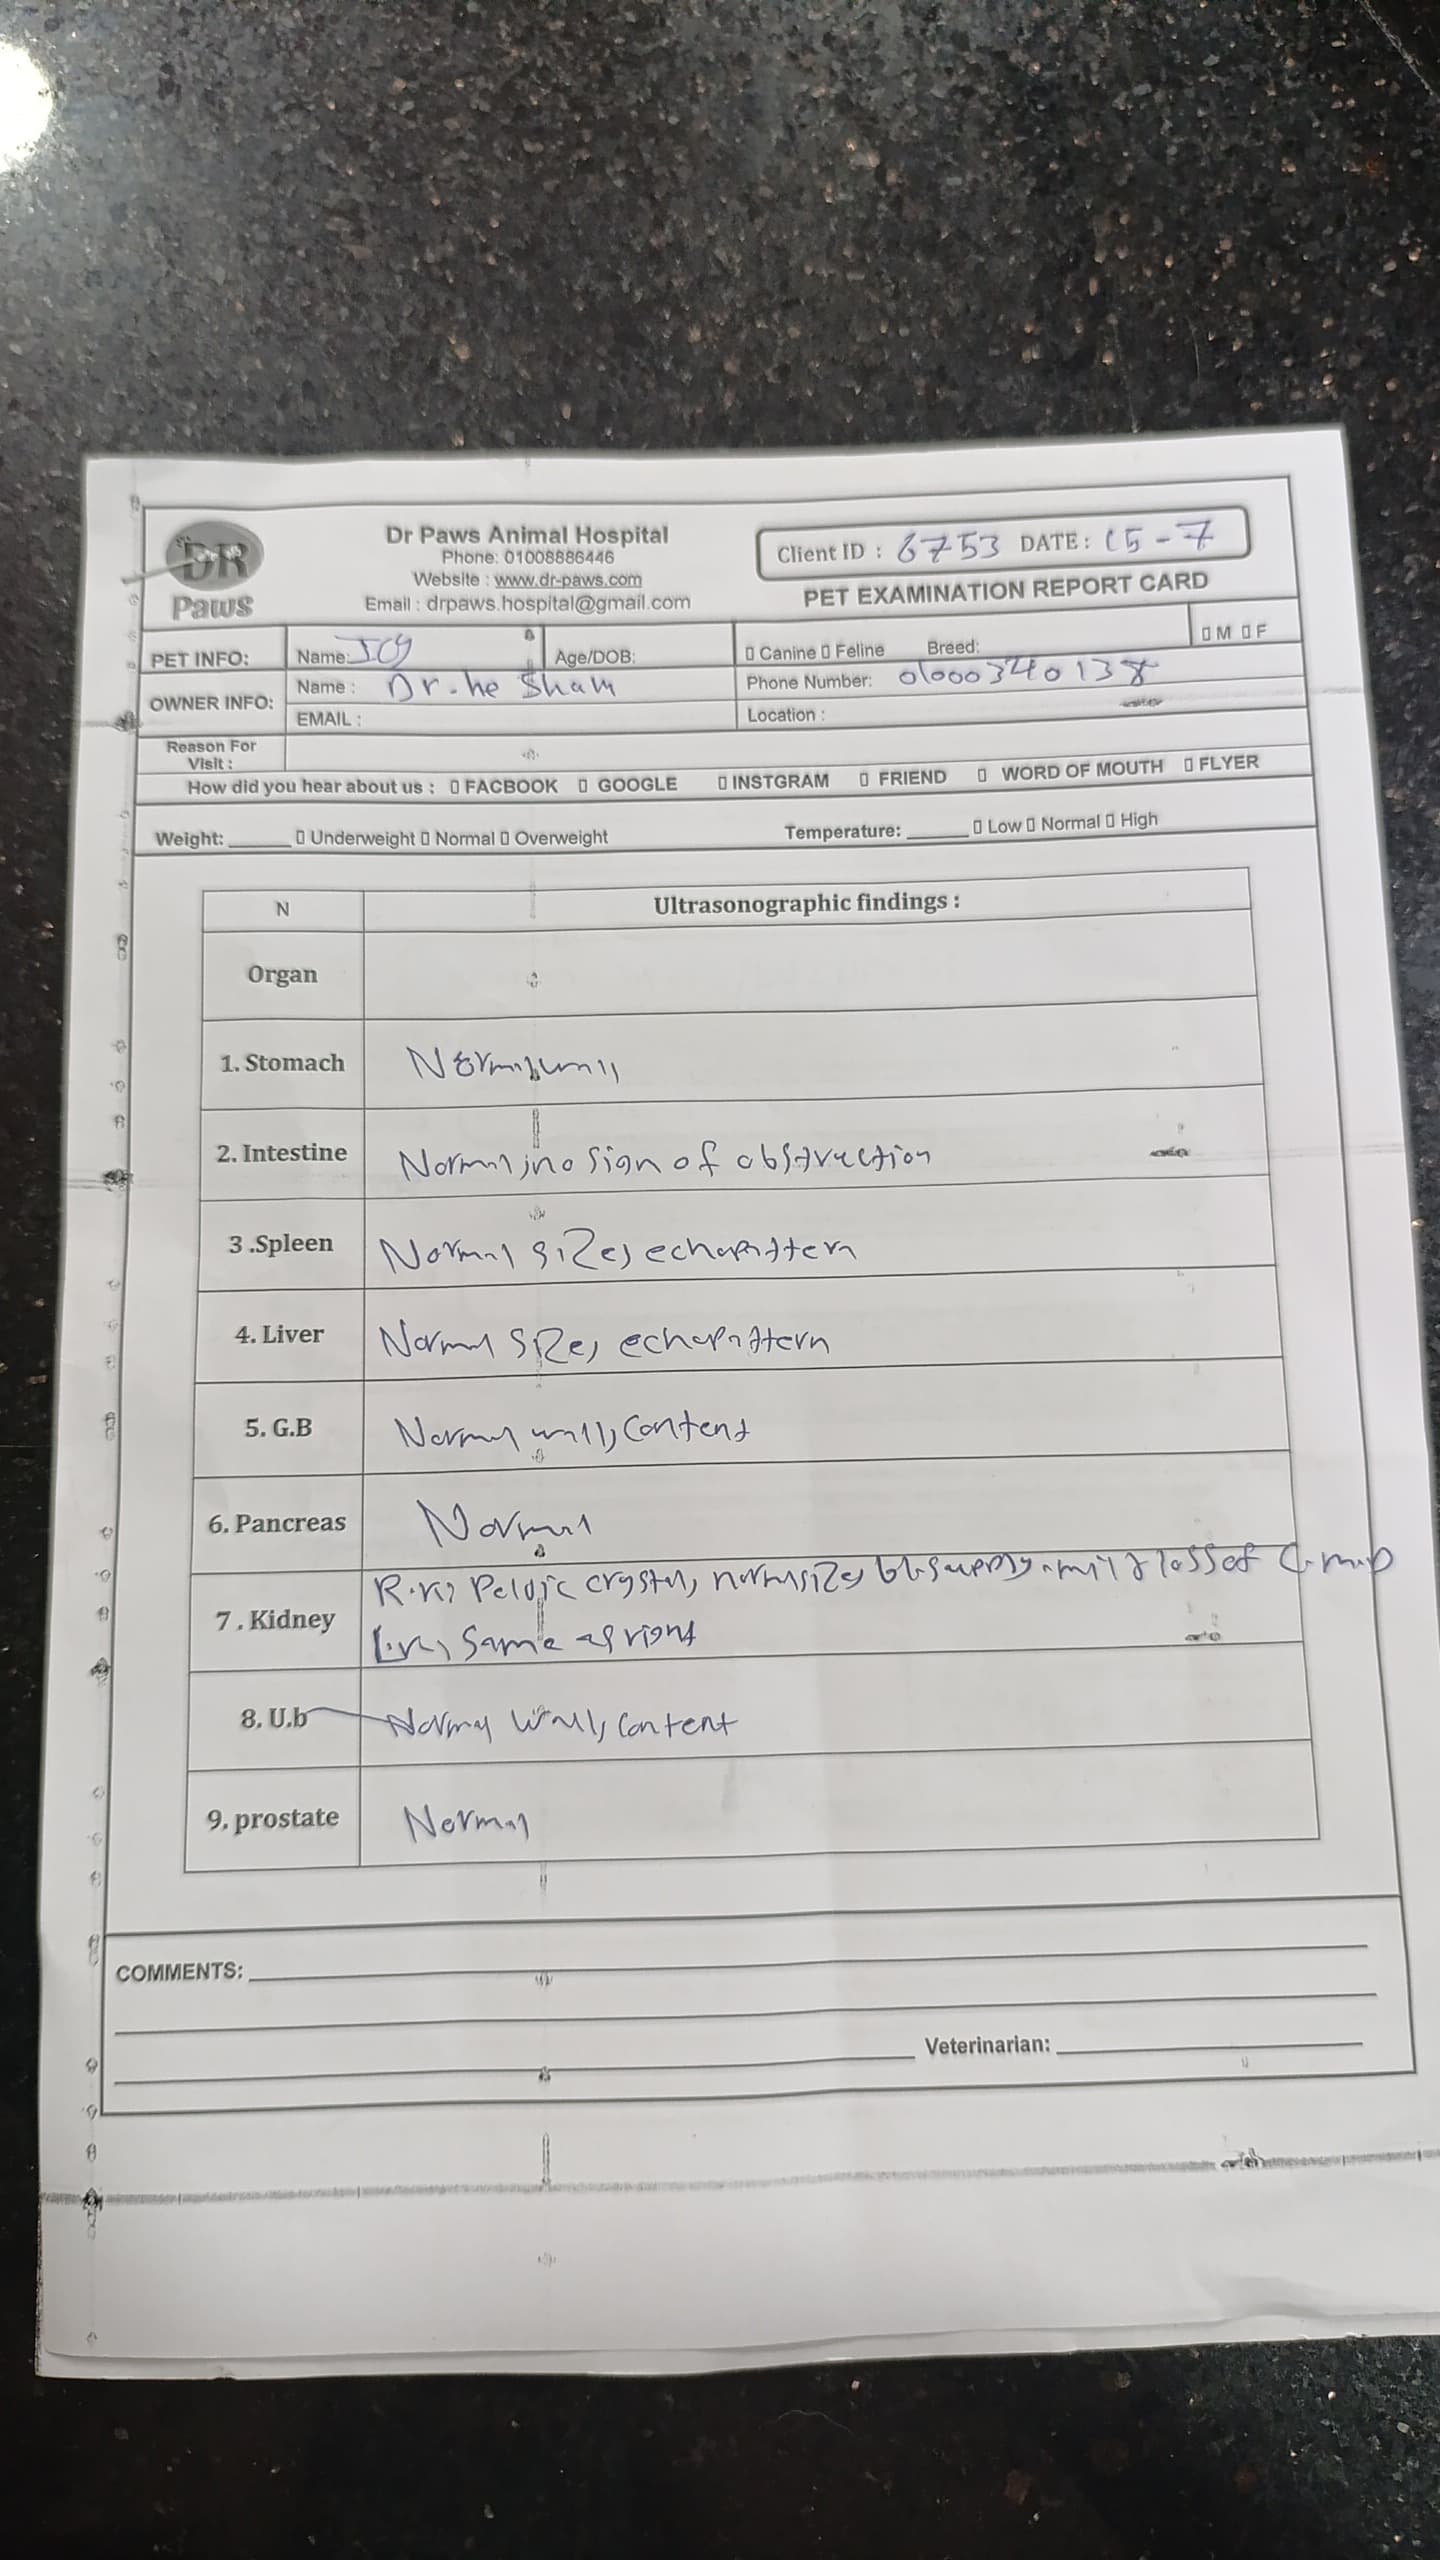 DR
Paws
Dr Paws Animal Hospital
Phone: 01008886446
Website : www.dr-paws.com
Email : drpaws.hospital@gmail.com
Client ID : 6753 DATE: 15-7
PET EXAMINATION REPORT CARD
PET INFO: Name: Joy Age/DOB: Canine Feline Breed: M F
OWNER INFO: Name : Dr.hesham Phone Number: 01000340138
EMAIL : Location :
Reason For
Visit :
How did you hear about us : FACBOOK GOOGLE INSTGRAM FRIEND WORD OF MOUTH FLYER
Weight: Underweight Normal Overweight Temperature: Low Normal High
N Ultrasonographic findings :
Organ
1. Stomach Normal wall
2. Intestine Normal, no sign of obstruction
3 .Spleen Normal size, echopattern
4. Liver Normal size, echopattern
5. G.B Normal wall, content
6. Pancreas Normal
7 . Kidney R.K, Pelvic crystal, normal size, bl.supply, mild loss of
L.K, Same as right
8. U.b Normal wall, content
9. prostate Normal
COMMENTS:
Veterinarian: